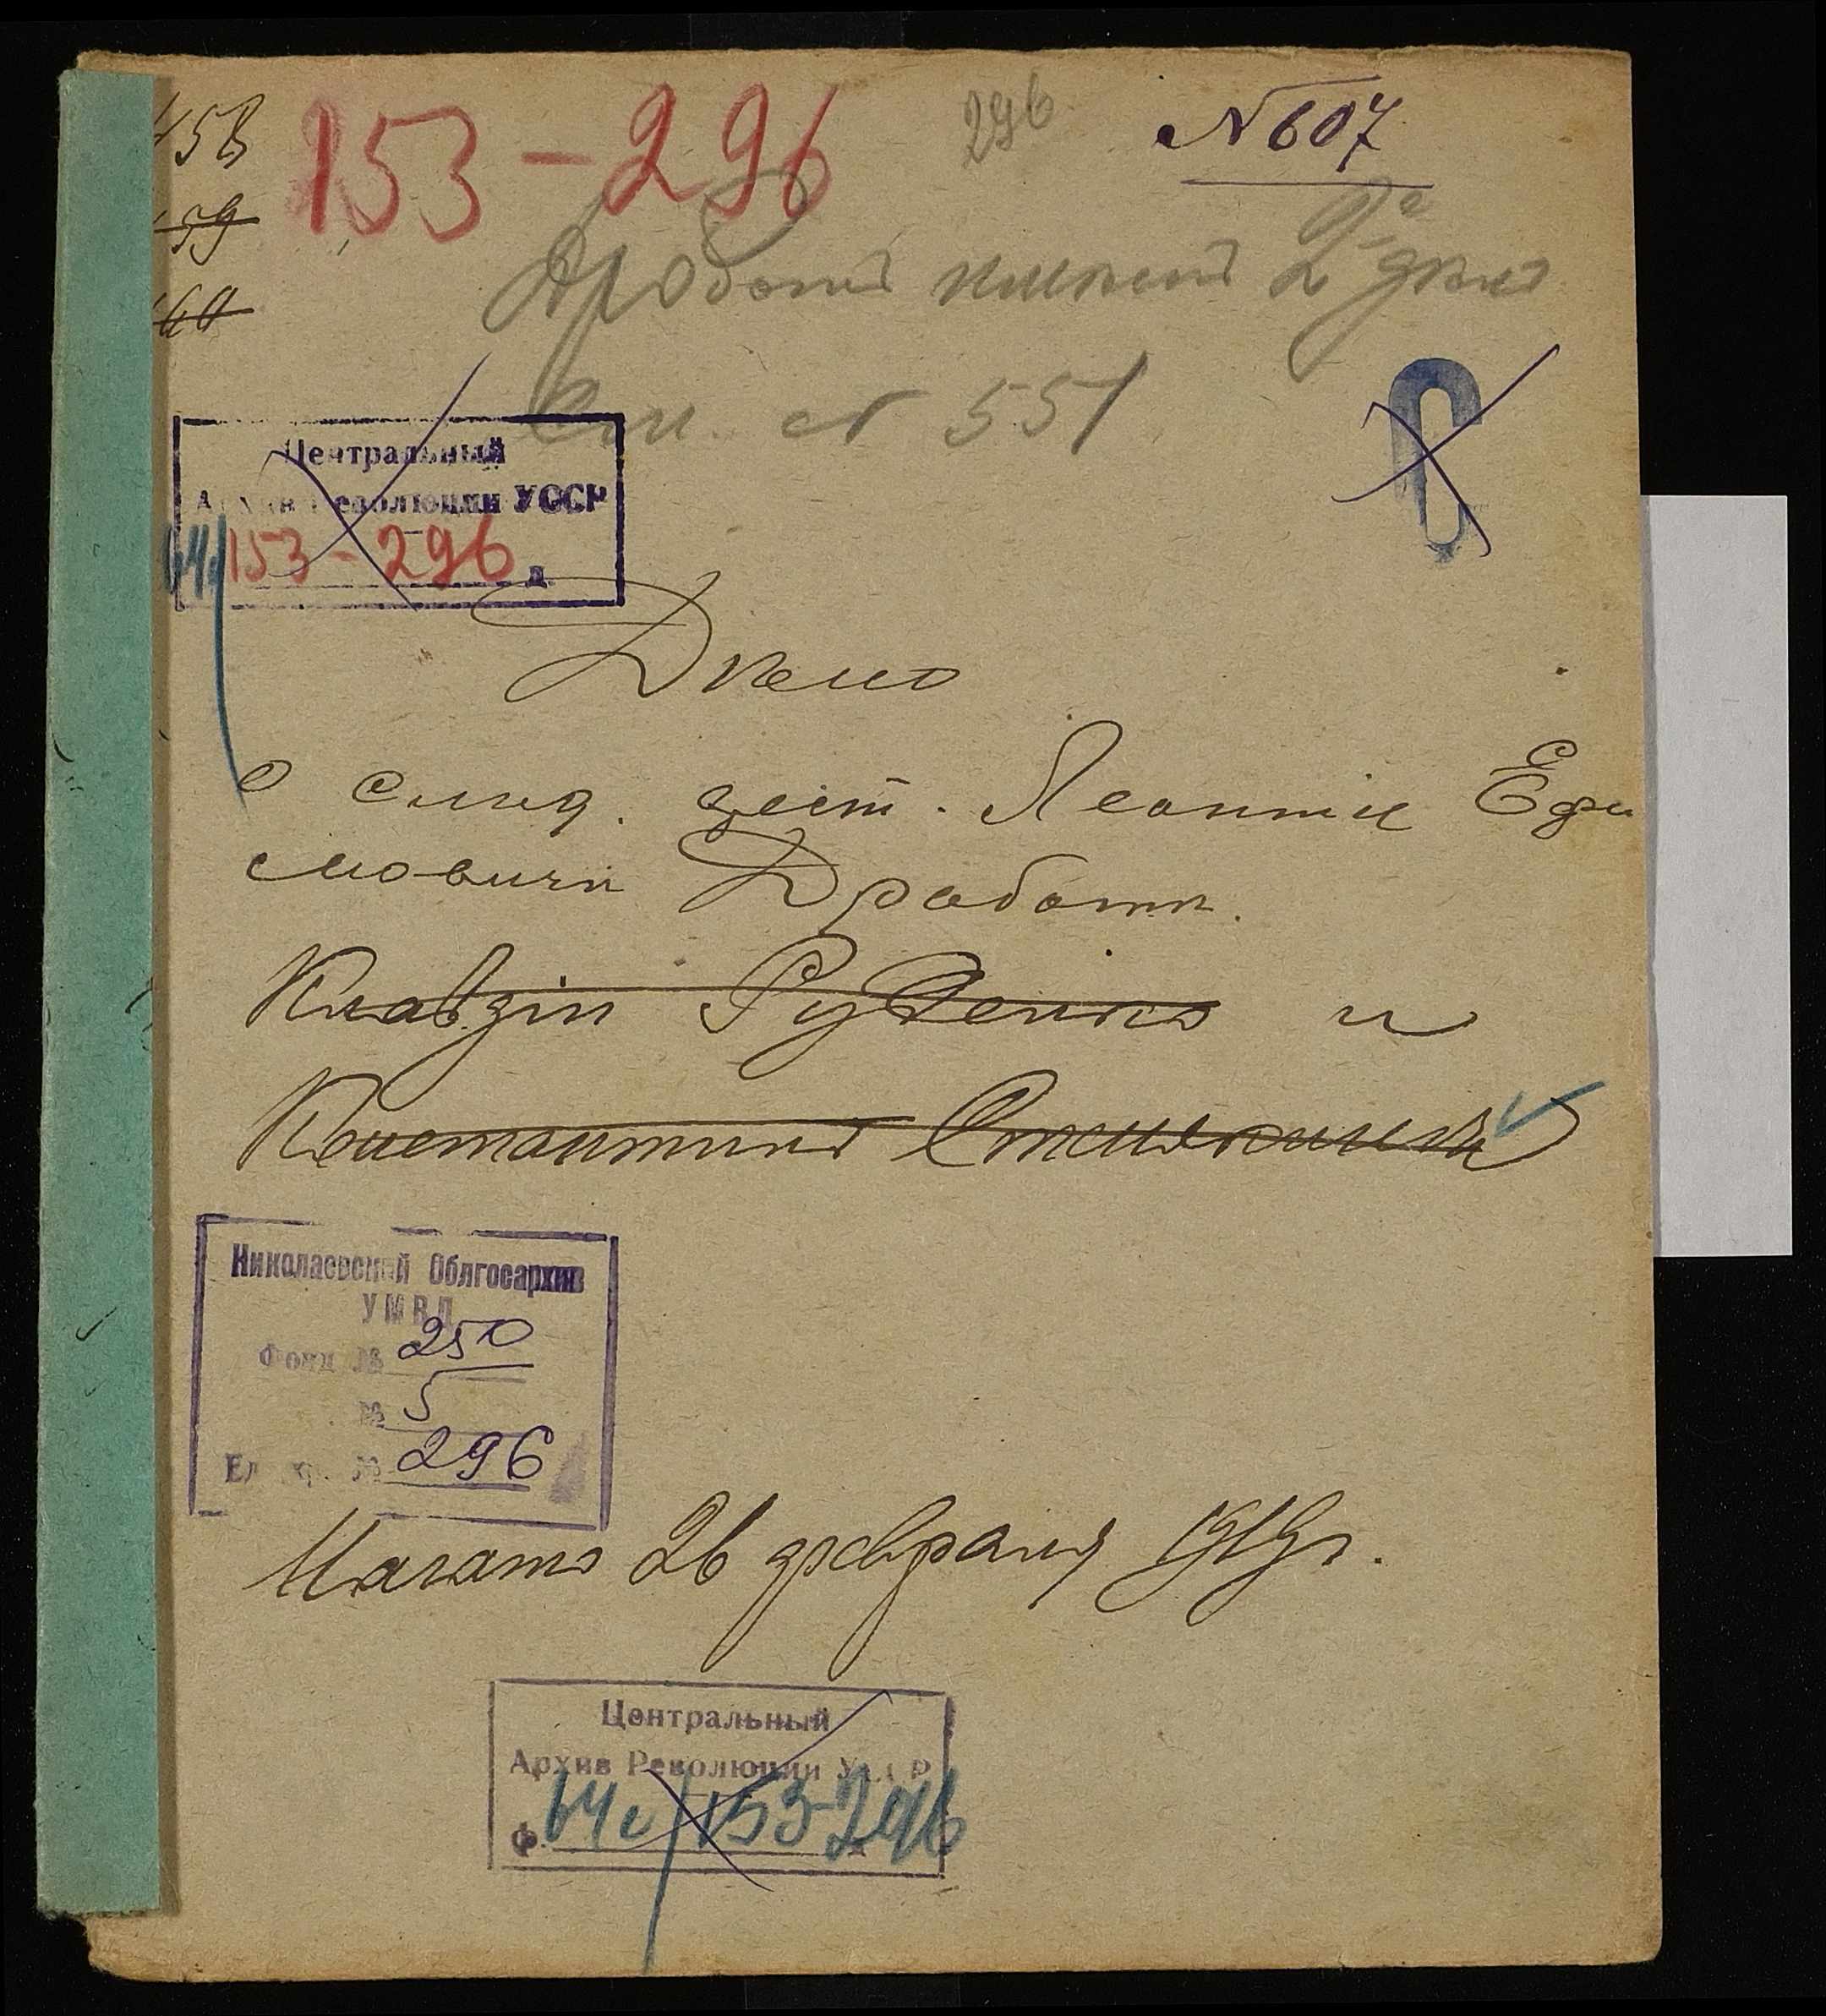 458
153-296
296
N 607
59
60
Дробот имеет 2 дела
См. N 551
Центральный
Архив Революции УССР
64с/153-296 д.
Дело
о след. арест. Леонтие Ефи
мовиче Дработе.
Клавдіи Руденко и
Константина
Николаевский Облгосархив
УМВД
Фонд № 250
№ 5
Ед. хр. № 296
Начато 26 февраля 1919 г.
Центральный
Архив Революции УССР
ф. 64с/153-296